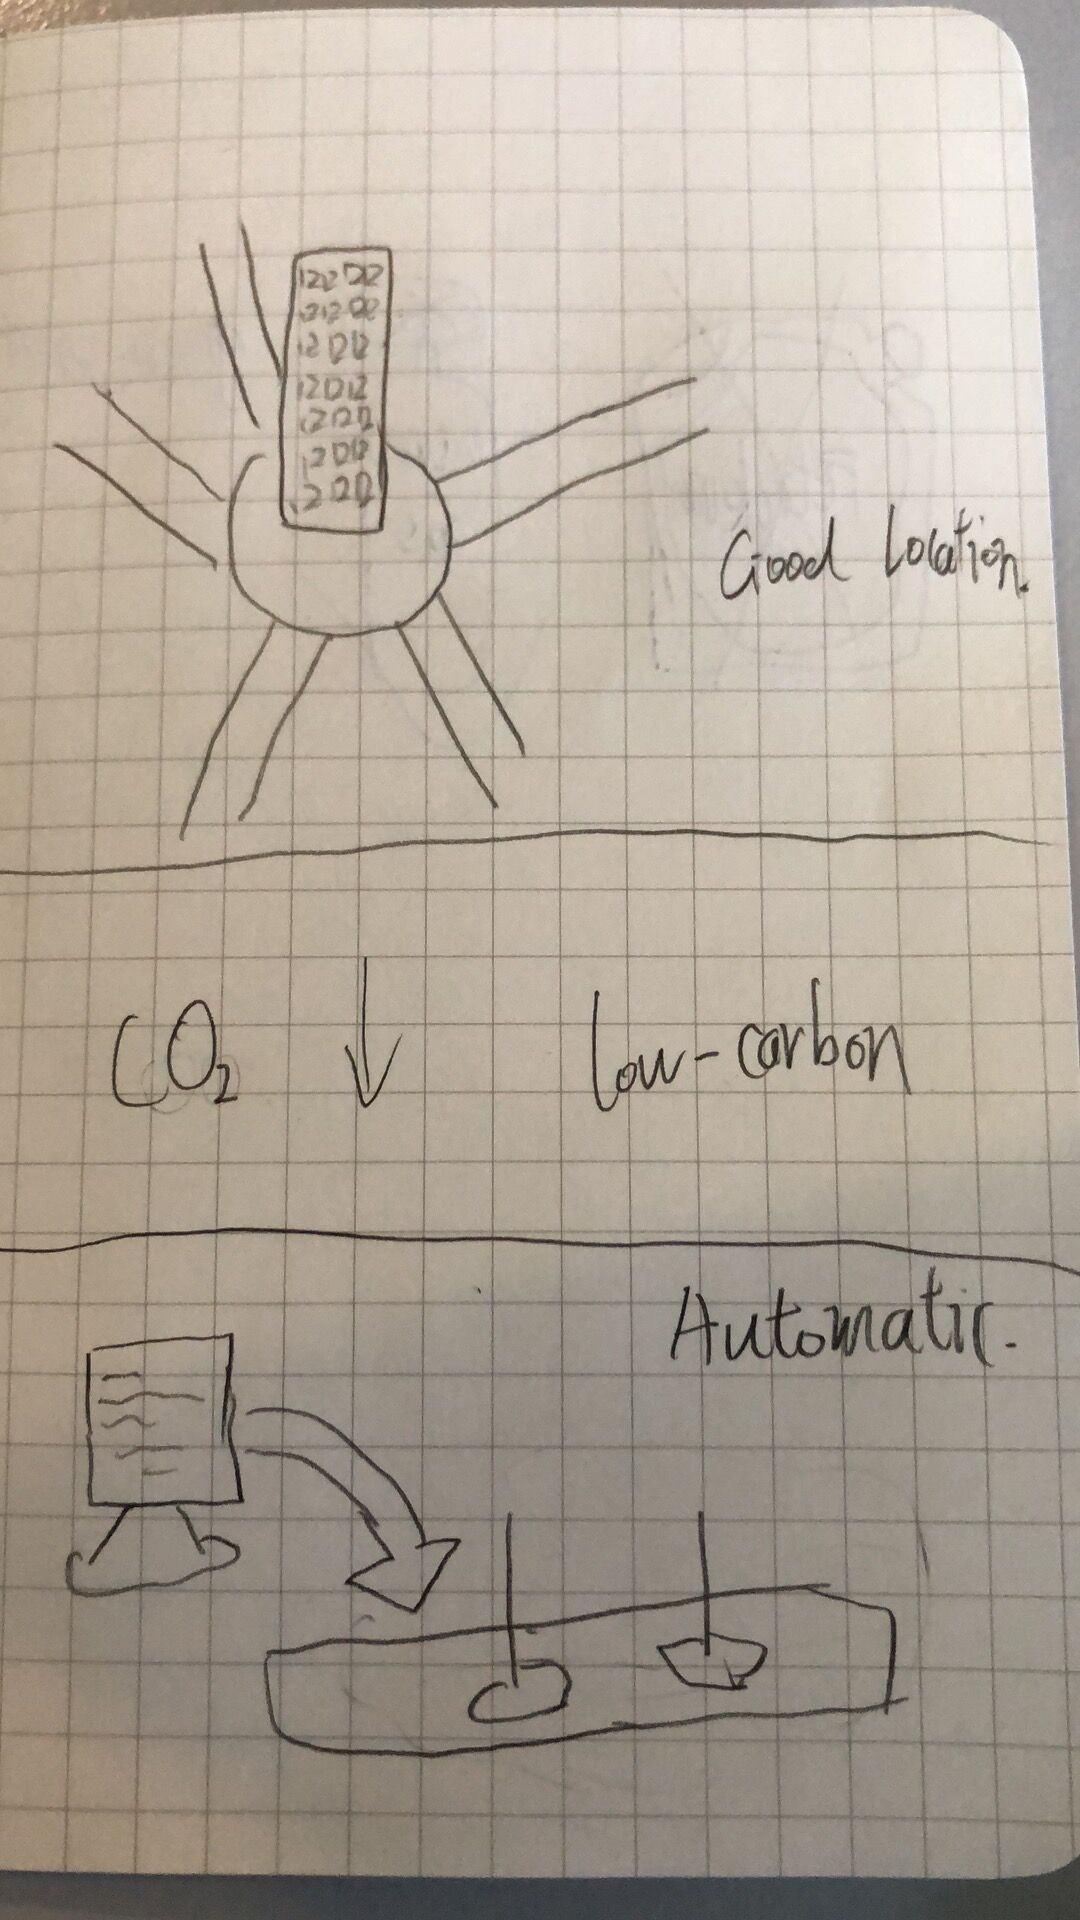 Good Location.
CO₂ ↓ low-carbon
Automatic.